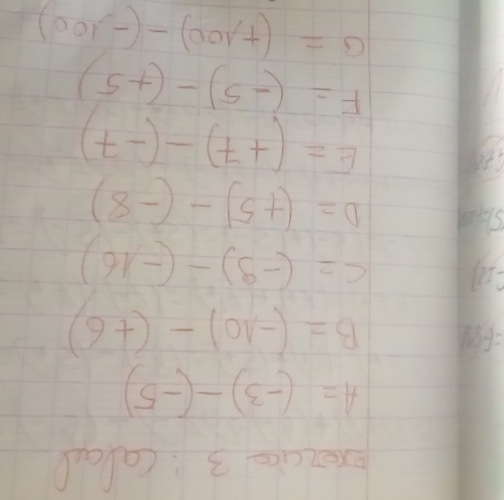 exercice 3 : Calcul
A = (-3) - (-5)
B = (-10) - (+6)
C = (-9) - (-16)
D = (+5) - (-8)
E = (+7) - (-7)
F = (-5) - (+5)
G = (+100) - (-100)